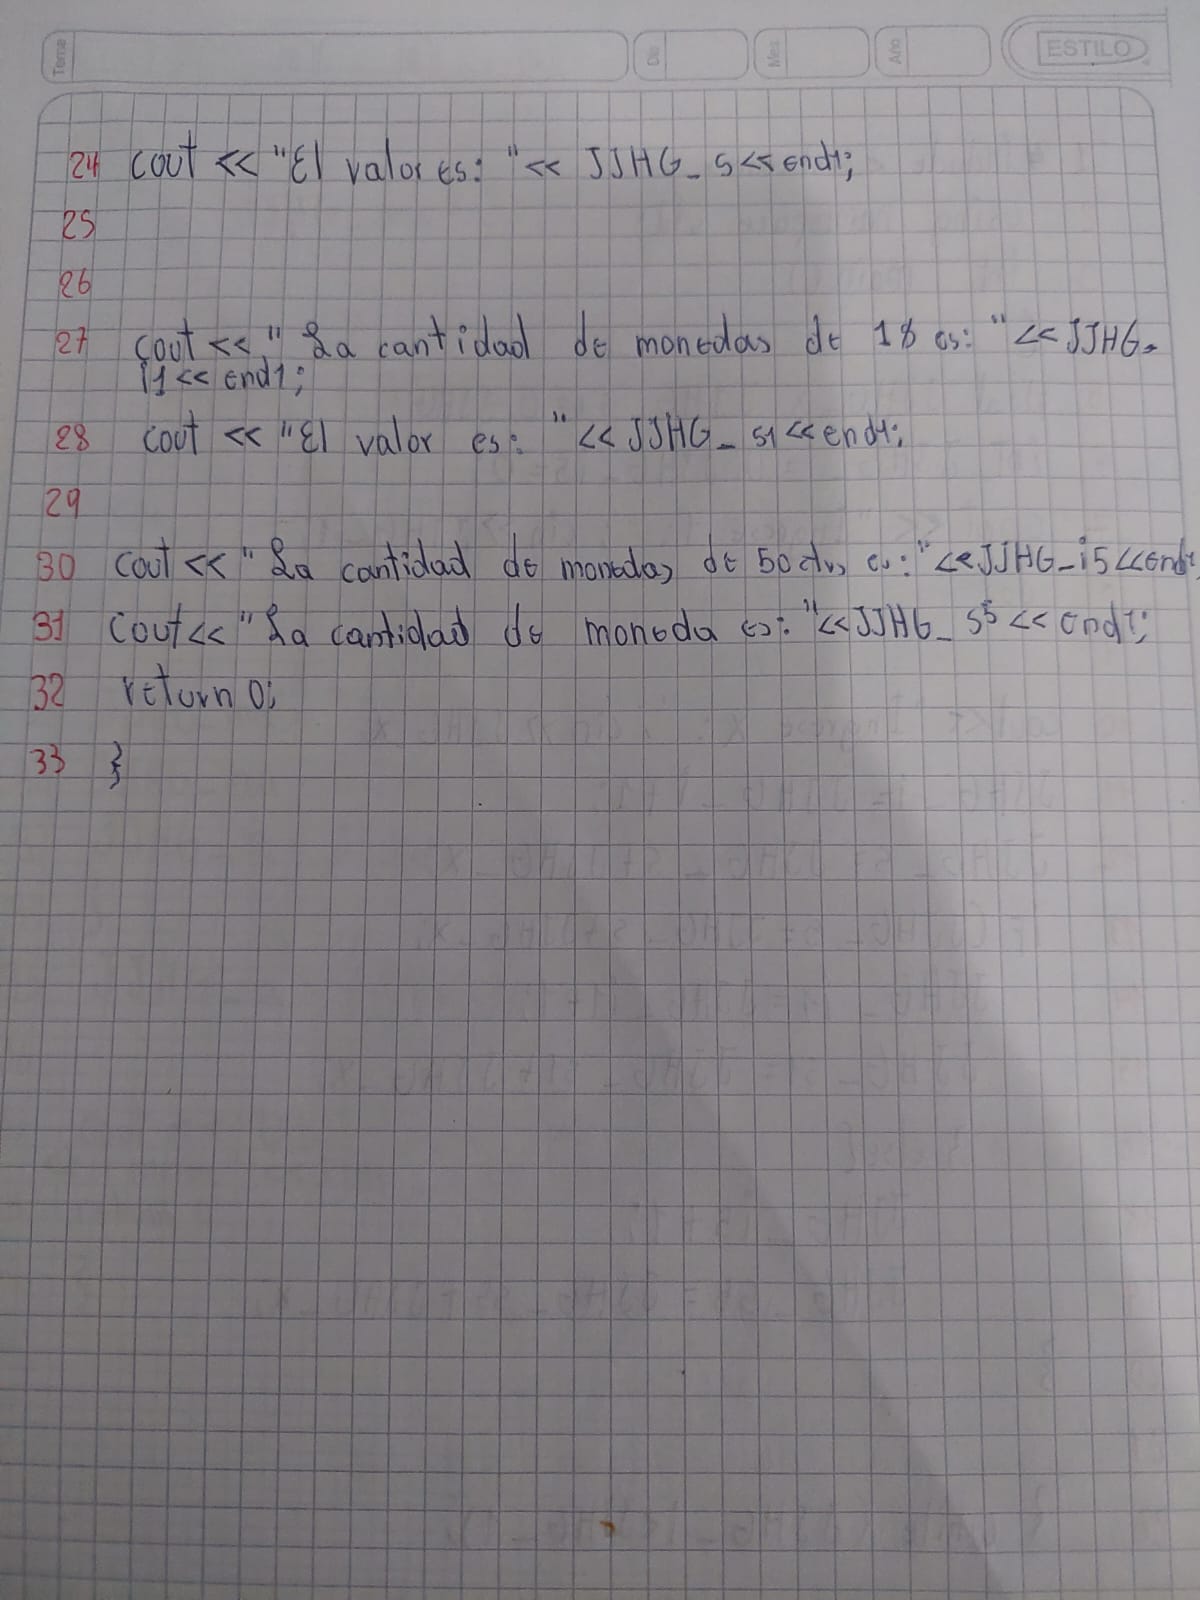 Tema Día Mes Año ESTILO
24 cout << "El valor es: " << JJHG_ s << endl;
25
26
27 cout << " La cantidad de monedas de 1$ es: " << JJHG_
i1 << endl;
28 cout << "El valor es: " << JJHG_ s1 << endl;
29
30 cout << " La cantidad de monedas de 50 ctvs es: " << JJHG_i5 << endl
31 cout << " La cantidad de moneda es: " << JJHG_ s5 << endl;
32 return 0;
33 }